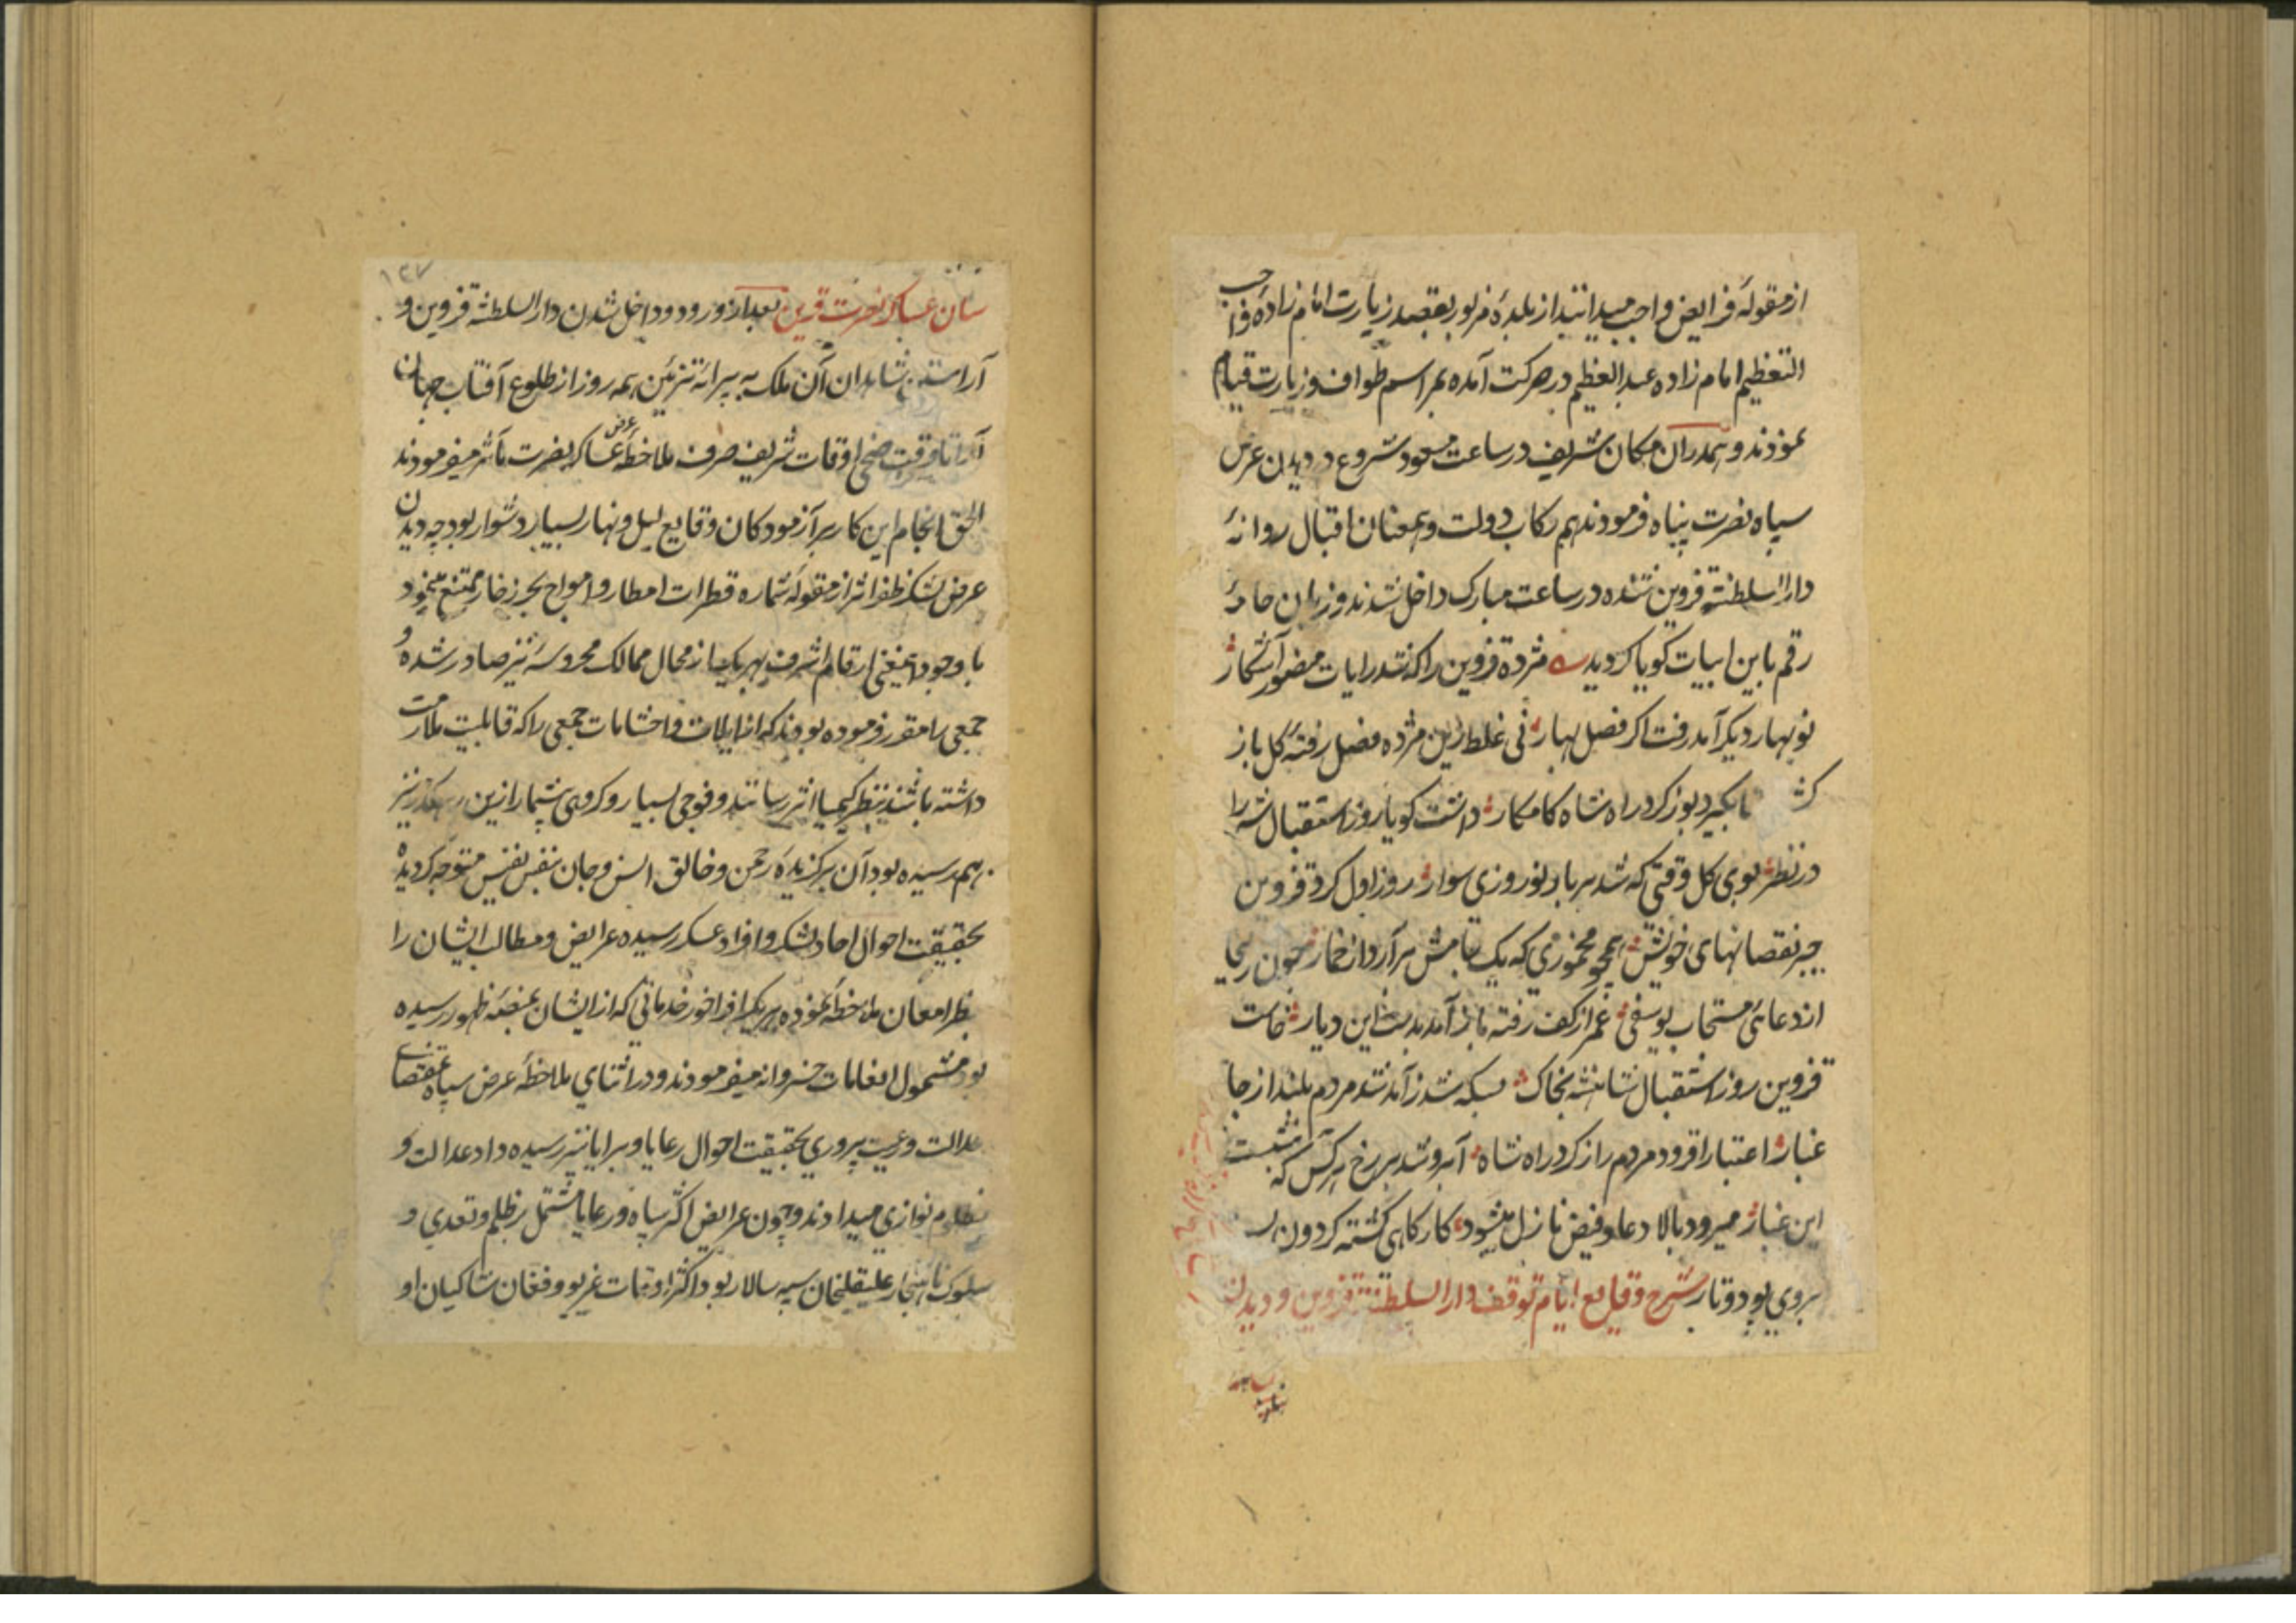 از مقولهٔ فرایض واجب میدانند از بلدهٔ مزبور بقصد زیارت امام زادهٔ واجب
التعظیم امام زاده عبدالعظیم در حرکت آمده بمراسم طواف و زیارت قیام
نموذند و همدران مکان شریف در ساعت مسعود شروع در دیدن عرض
سپاه نصرت پناه فرمودند هم رکاب دولت و همعنان اقبال روانهٔ
دارالسلطنهٔ قزوین شده در ساعت مبارک داخل شدند و زبان خامهٔ
رقم باین ابیات کویا کردید مژدة قزوین را که شد رایات منصور آشکار
نو بهار دیکر آمد رفت اکر فصل بهار نی غلط زین مژده فصل رفتهٔ کل باز
کشت تا بکیرد بوز کرد راه شاه کامکار داشت کویا روز استقبال شه را
در نظر بوی کل وقتی که شد بر باد نوروزی سوار روز اول کرد قزوین
جبر نقصانهای خویش همچو مخموری که یک جامش برآرد از خمار چون زلیخا
از دعای مستجاب یوسفی عمر از کف رفته باز آمد بدست این دیار خاست
قزوین روز استقبال شاهنشه بخاک بسکه شد ز آمد شد مردم بلند از جا
غبار اعتبار افزود مردم را ز کرد راه شاه آبرو شد بر رخ هر کس که بنشست
این غبار میرود بالا دعا و فیض نازل میشود کار کاهی کشته کردون
بروی پود و تار شرح وقایع ایام توقف دارالسلطنهٔ قزوین و دیدن
۱۳۷
سان عساکر نصرت قرین بعد از ورود و داخل شدن دارالسلطنهٔ قزوین و
آراستن شاهدان آن ملک به پیرایهٔ تزئین همه روز از طلوع آفتاب جهان
آرا تا وقت ضحی اوقات شریف صرف ملاحظهٔ عرض عساکر نصرت مآثر میفرمودند
الحق انجام این کار بر آزمودکان وقایع لیل و نهار بسیار دشوار بود چه دیدن
عرض لشکر ظفر اثر از مقولهٔ شماره قطرات امطار و امواج بحر زخار ممتنع مینمود
با وجود اینمعنی ارقام اشرف بهر یک از محال ممالک محروسه نیز صادر شده و
جمعی را مقرر فرموده بودند که از ایلات و احشامات جمعی را که قابلیت ملازمت
داشته باشند بنظر کیمیا اثر رسانند و فوجی بسیار و کروهی بیشمار ازین رهکذر نیز
بهم رسیده بود آن برکزیدهٔ رحمن و خالق انس و جان بنفس نفیس متوجه کردیده
بحقیقت احوال احاد لشکر و افراد عسکر رسیده عرایض و مطالب ایشان را
بنظر امعان ملاحظه نموده هر یک را فراخور خدماتی که از ایشان بمنصهٔ ظهور رسیده
بود مشمول انعامات خسروانه میفرمودند و در اثنای ملاحظهٔ عرض سپاه بمقتضای
عدالت و رعیت پروری بحقیقت احوال رعایا و برایا نیز رسیده داد عدالت و
مظلوم نوازی میدادند و چون عرایض اکثر سپاه و رعایا مشتمل بر ظلم و تعدی و
سلوک ناهنجار علیقلیخان سپه سالار بود اکثر اوقات غریو و فغان شاکیان او